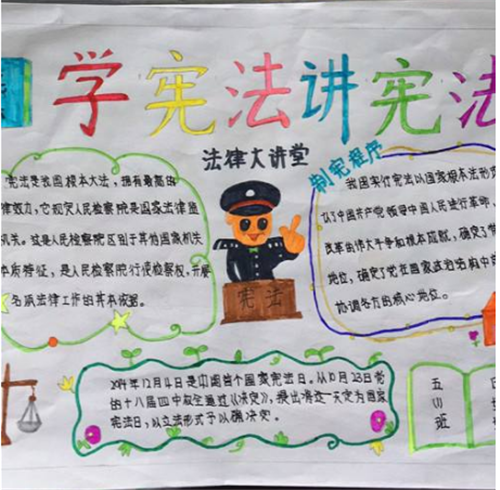 学宪法讲宪法
法律大讲堂
制宪程序
宪法是我国根本大法，拥有最高法
律效力，它规定人民检察院是国家法律监
机关。这是人民检察院区别于其他国家机关
本质特征，是人民检察院行使检察权，开展
各项法律工作的其本依据。
我国实行宪法以国家根本法形
以了中国共产党领导中国人民进行革命，
改革的伟大斗争和根本成就，确定了
地位，确定了党在国家政治
协调各方的核心地位。
宪法
2014年12月4日是中国首个国家宪法日。从10月23日党
的十八届四中全会通过《决定》，提出将这一天定为国家
宪法日，以立法形式予以确决定。
五
班